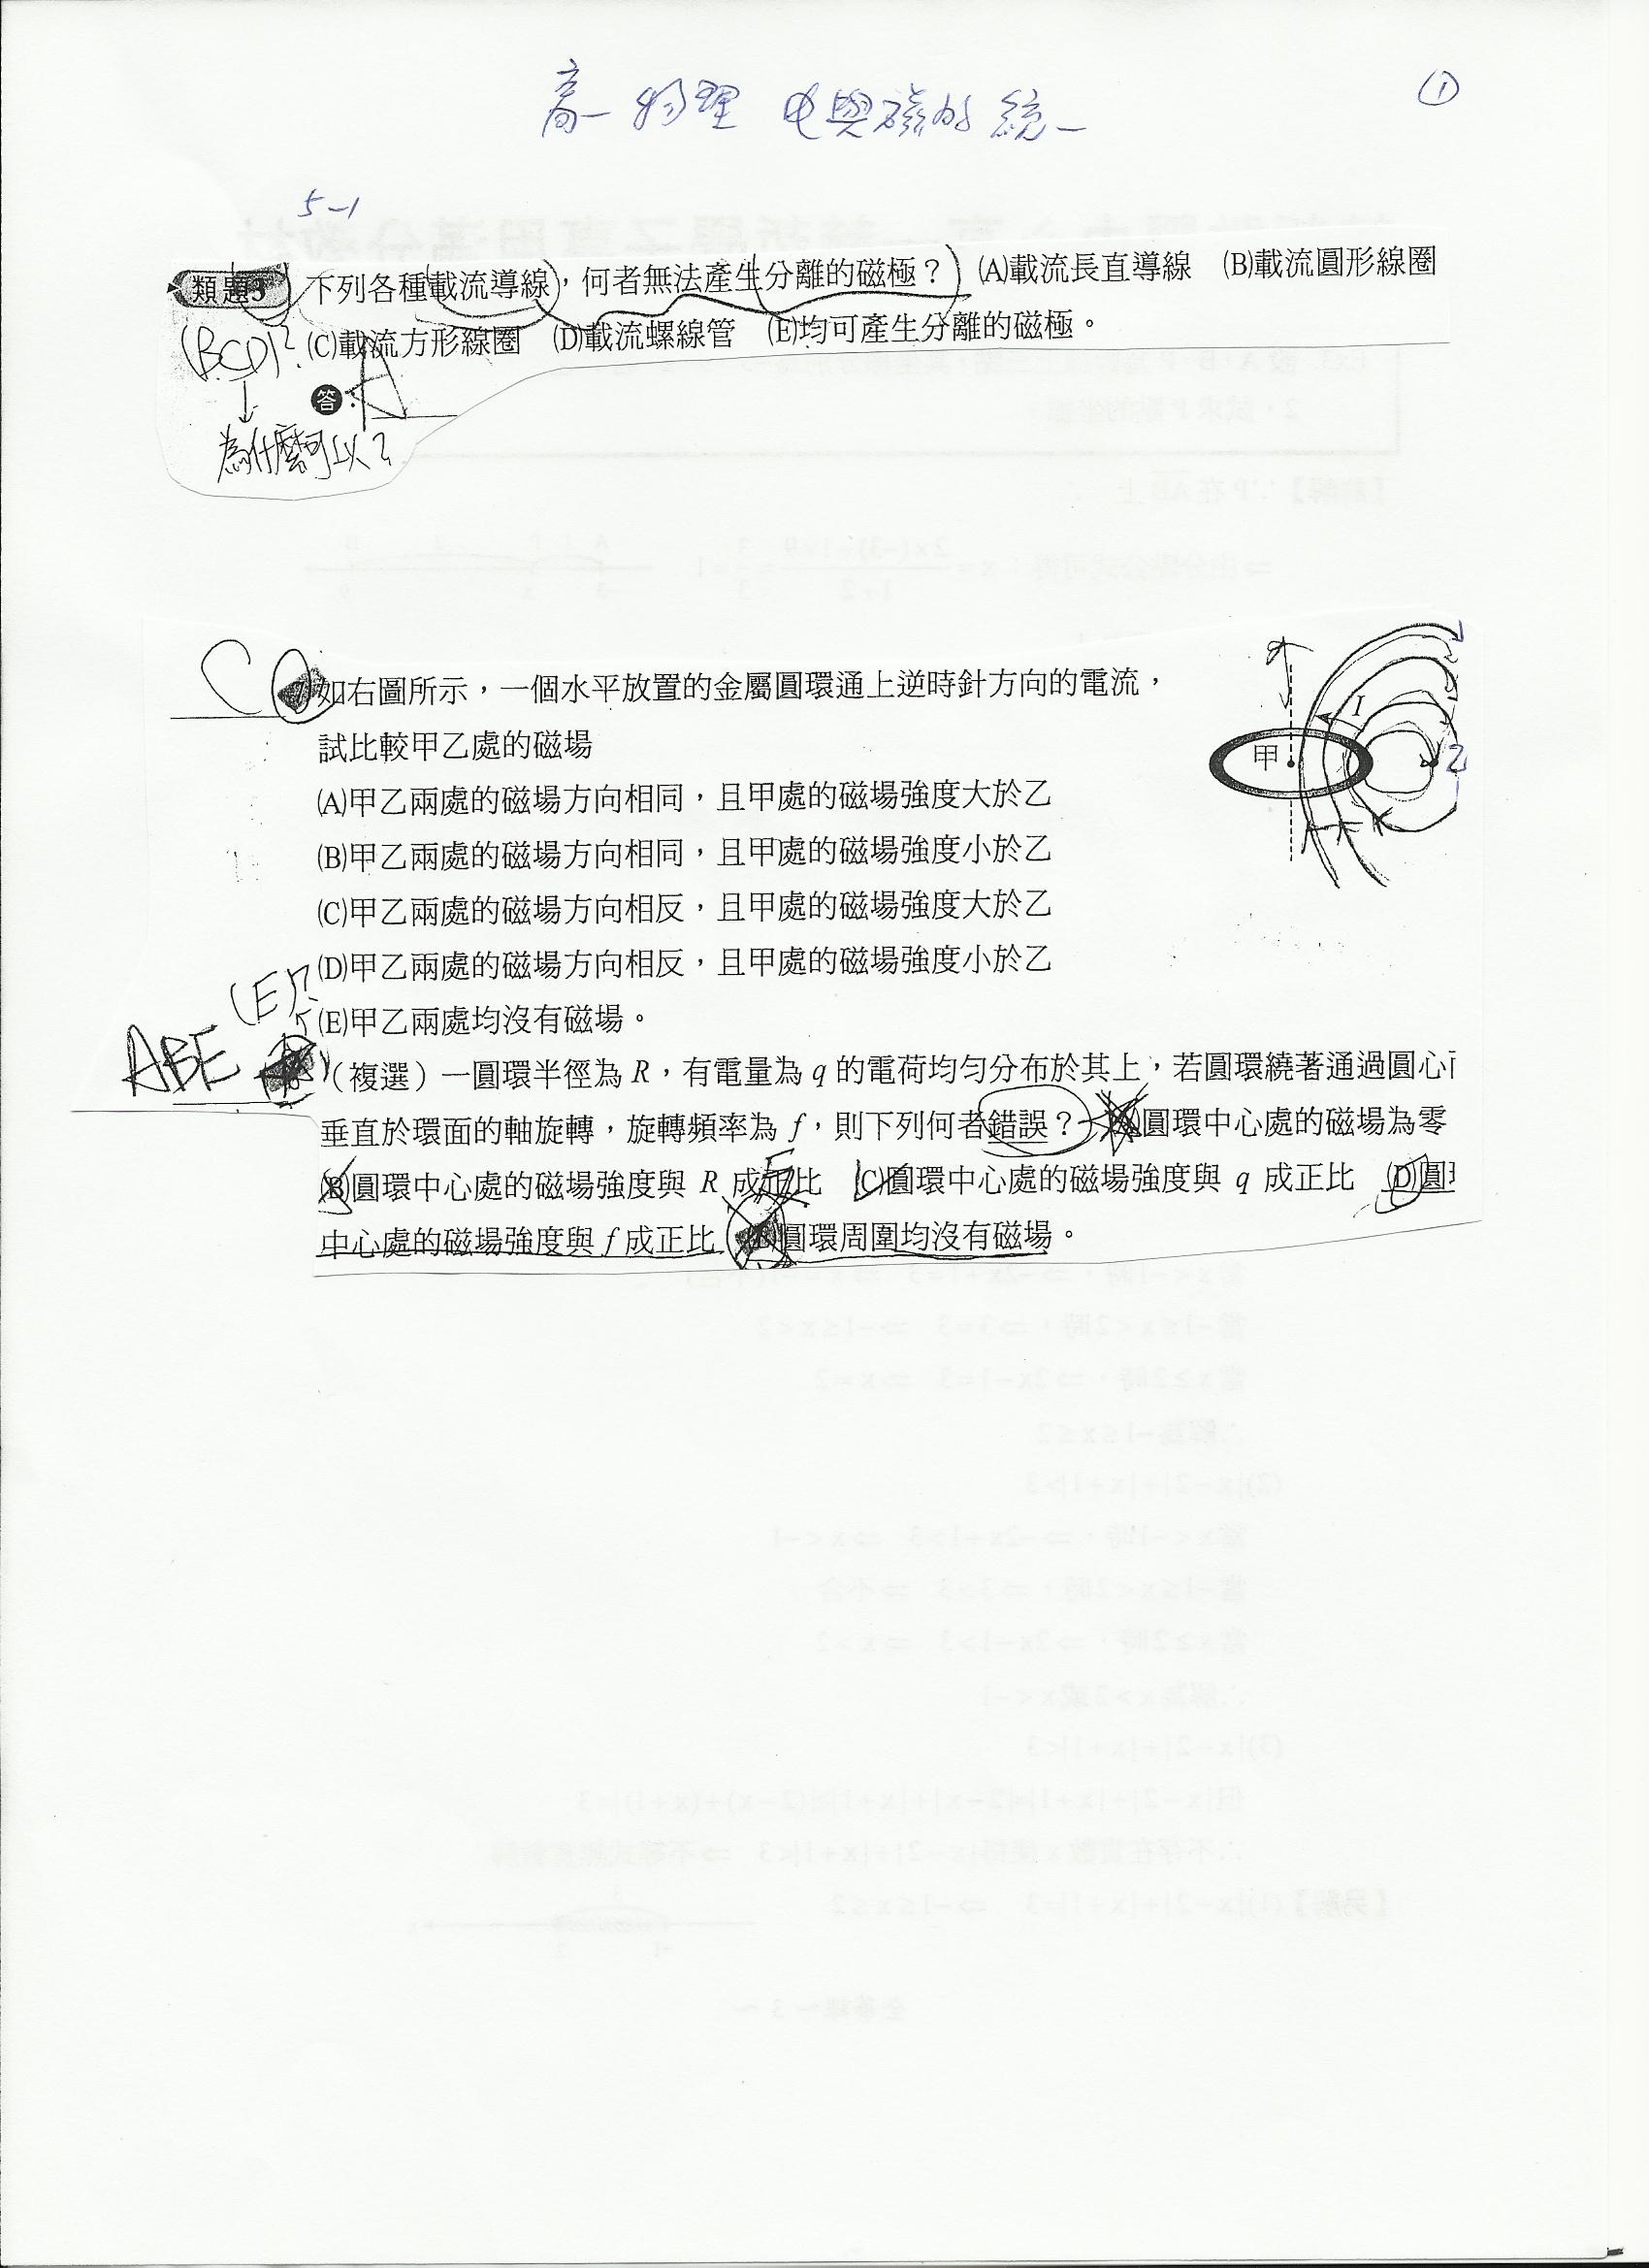 高一 物理 电與磁的統一
①
5-1
類題3 下列各種載流導線，何者無法產生分離的磁極？ (A)載流長直導線 (B)載流圓形線圈
(BCD)? (C)載流方形線圈 (D)載流螺線管 (E)均可產生分離的磁極。
答：A
為什麼可以？
C 7 如右圖所示，一個水平放置的金屬圓環通上逆時針方向的電流，
試比較甲乙處的磁場
I
甲 乙
(A)甲乙兩處的磁場方向相同，且甲處的磁場強度大於乙
(B)甲乙兩處的磁場方向相同，且甲處的磁場強度小於乙
(C)甲乙兩處的磁場方向相反，且甲處的磁場強度大於乙
(D)甲乙兩處的磁場方向相反，且甲處的磁場強度小於乙
(E)? (E)甲乙兩處均沒有磁場。
ABE （複選）一圓環半徑為 R，有電量為 q 的電荷均勻分布於其上，若圓環繞著通過圓心
垂直於環面的軸旋轉，旋轉頻率為 f，則下列何者錯誤？ 圓環中心處的磁場為零
(B)圓環中心處的磁場強度與 R 成正比 反 (C)圓環中心處的磁場強度與 q 成正比 (D)圓
中心處的磁場強度與 f 成正比 圓環周圍均沒有磁場。